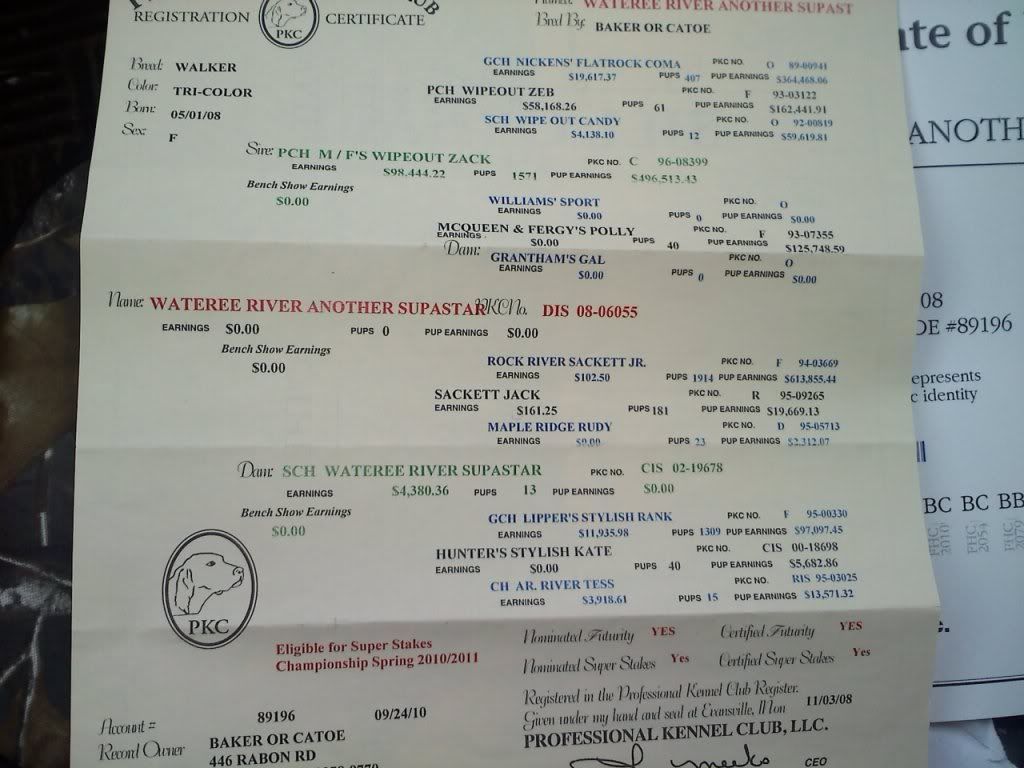 REGISTRATION CERTIFICATE
PKC
WATEREE RIVER ANOTHER SUPAST
Bred By: BAKER OR CATOE
Breed: WALKER
Color: TRI-COLOR
Born: 05/01/08
Sex: F
GCH NICKENS' FLATROCK COMA PKC NO. O 89-00941
EARNINGS $19,617.37 PUPS 407 PUP EARNINGS $364,468.06
PCH WIPEOUT ZEB PKC NO. F 93-03122
EARNINGS $58,168.26 PUPS 61 PUP EARNINGS $162,441.91
SCH WIPE OUT CANDY PKC NO. O 92-00819
EARNINGS $4,138.10 PUPS 12 PUP EARNINGS $59,619.81
Sire: PCH M / F'S WIPEOUT ZACK PKC NO. C 96-08399
EARNINGS $98,444.22 PUPS 1571 PUP EARNINGS $496,513.43
Bench Show Earnings
$0.00
WILLIAMS' SPORT PKC NO. O
EARNINGS $0.00 PUPS 0 PUP EARNINGS $0.00
MCQUEEN & FERGY'S POLLY PKC NO. F 93-07355
EARNINGS $0.00 PUPS 40 PUP EARNINGS $125,748.59
Dam:
GRANTHAM'S GAL PKC NO. O
EARNINGS $0.00 PUPS 0 PUP EARNINGS $0.00
Name: WATEREE RIVER ANOTHER SUPASTAR PKC No. DIS 08-06055
EARNINGS $0.00 PUPS 0 PUP EARNINGS $0.00
Bench Show Earnings
$0.00
ROCK RIVER SACKETT JR. PKC NO. F 94-03669
EARNINGS $102.50 PUPS 1914 PUP EARNINGS $613,855.44
SACKETT JACK PKC NO. R 95-09265
EARNINGS $161.25 PUPS 181 PUP EARNINGS $19,669.13
MAPLE RIDGE RUDY PKC NO. D 95-05713
EARNINGS $0.00 PUPS 23 PUP EARNINGS $2,312.07
Dam: SCH WATEREE RIVER SUPASTAR PKC NO. CIS 02-19678
EARNINGS $4,380.36 PUPS 13 PUP EARNINGS $0.00
Bench Show Earnings
$0.00
GCH LIPPER'S STYLISH RANK PKC NO. F 95-00330
EARNINGS $11,935.98 PUPS 1309 PUP EARNINGS $97,097.45
HUNTER'S STYLISH KATE PKC NO. CIS 00-18698
EARNINGS $0.00 PUPS 40 PUP EARNINGS $5,682.86
CH AR. RIVER TESS PKC NO. RIS 95-03025
EARNINGS $3,918.61 PUPS 15 PUP EARNINGS $13,571.32
PKC
Eligible for Super Stakes
Championship Spring 2010/2011
Nominated Futurity YES Certified Futurity YES
Nominated Super Stakes Yes Certified Super Stakes Yes
Registered in the Professional Kennel Club Register.
Given under my hand and seal at Evansville, Mon 11/03/08
PROFESSIONAL KENNEL CLUB, LLC.
CEO
Account = 89196 09/24/10
Record Owner BAKER OR CATOE
446 RABON RD
ate of
ANOTH
08
DE #89196
epresents
c identity
BC BC BB
FHC 2010 FHC 2054 FHC